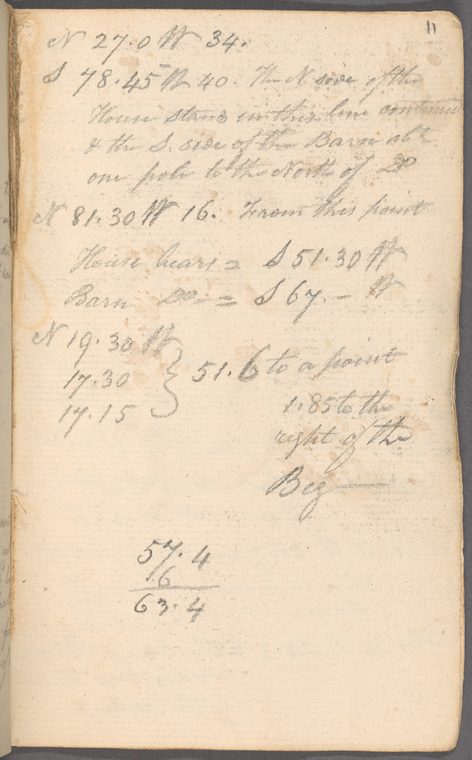 11
N 27.0 W 34.
S 78.45 W 40. The N side of the
House stands in this line continued
& the S. side of the Barn abt
one pole to the North of Do
N 81.30 W 16. From this point
House bears = S 51.30 W
Barn Do. = S 67. - W
N 19.30 W
17.30 } 51.6 to a point
17.15
1.85 to the
right of the
Beg
57.4
6
63.4